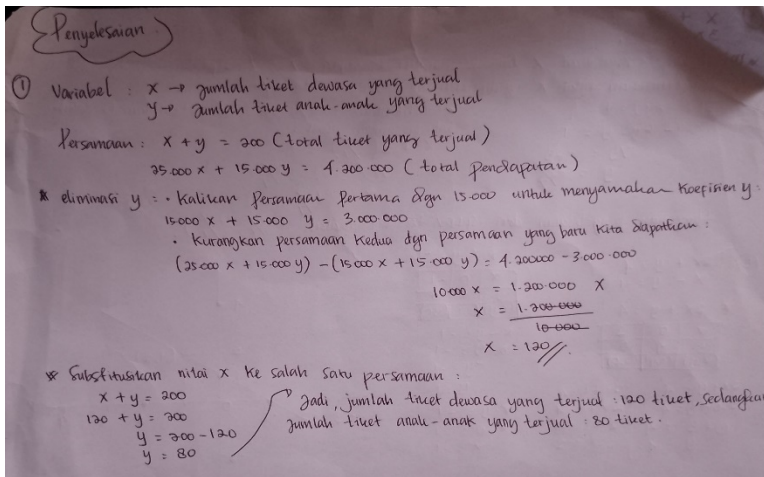 Penyelesaian.
① Variabel : x → Jumlah tiket dewasa yang terjual
y → Jumlah tiket anak-anak yang terjual
Persamaan : x + y = 200 (total tiket yang terjual)
25.000 x + 15.000 y = 4.200.000 (total pendapatan)
* eliminasi y : • Kalikan Persamaan Pertama dgn 15.000 untuk menyamakan Koefisien y :
15.000 x + 15.000 y = 3.000.000
• Kurangkan persamaan kedua dgn persamaan yang baru kita dapatkan :
(25.000 x + 15.000 y) - (15.000 x + 15.000 y) = 4.200000 - 3.000.000
10.000 x = 1.200.000 x
x = 1.200.000
10.000
x = 120 //.
* Substitusikan nilai x ke salah satu persamaan :
x + y = 200
120 + y = 200
y = 200 - 120
y = 80
Jadi, jumlah tiket dewasa yang terjual : 120 tiket, sedangkan
Jumlah tiket anak-anak yang terjual : 80 tiket.